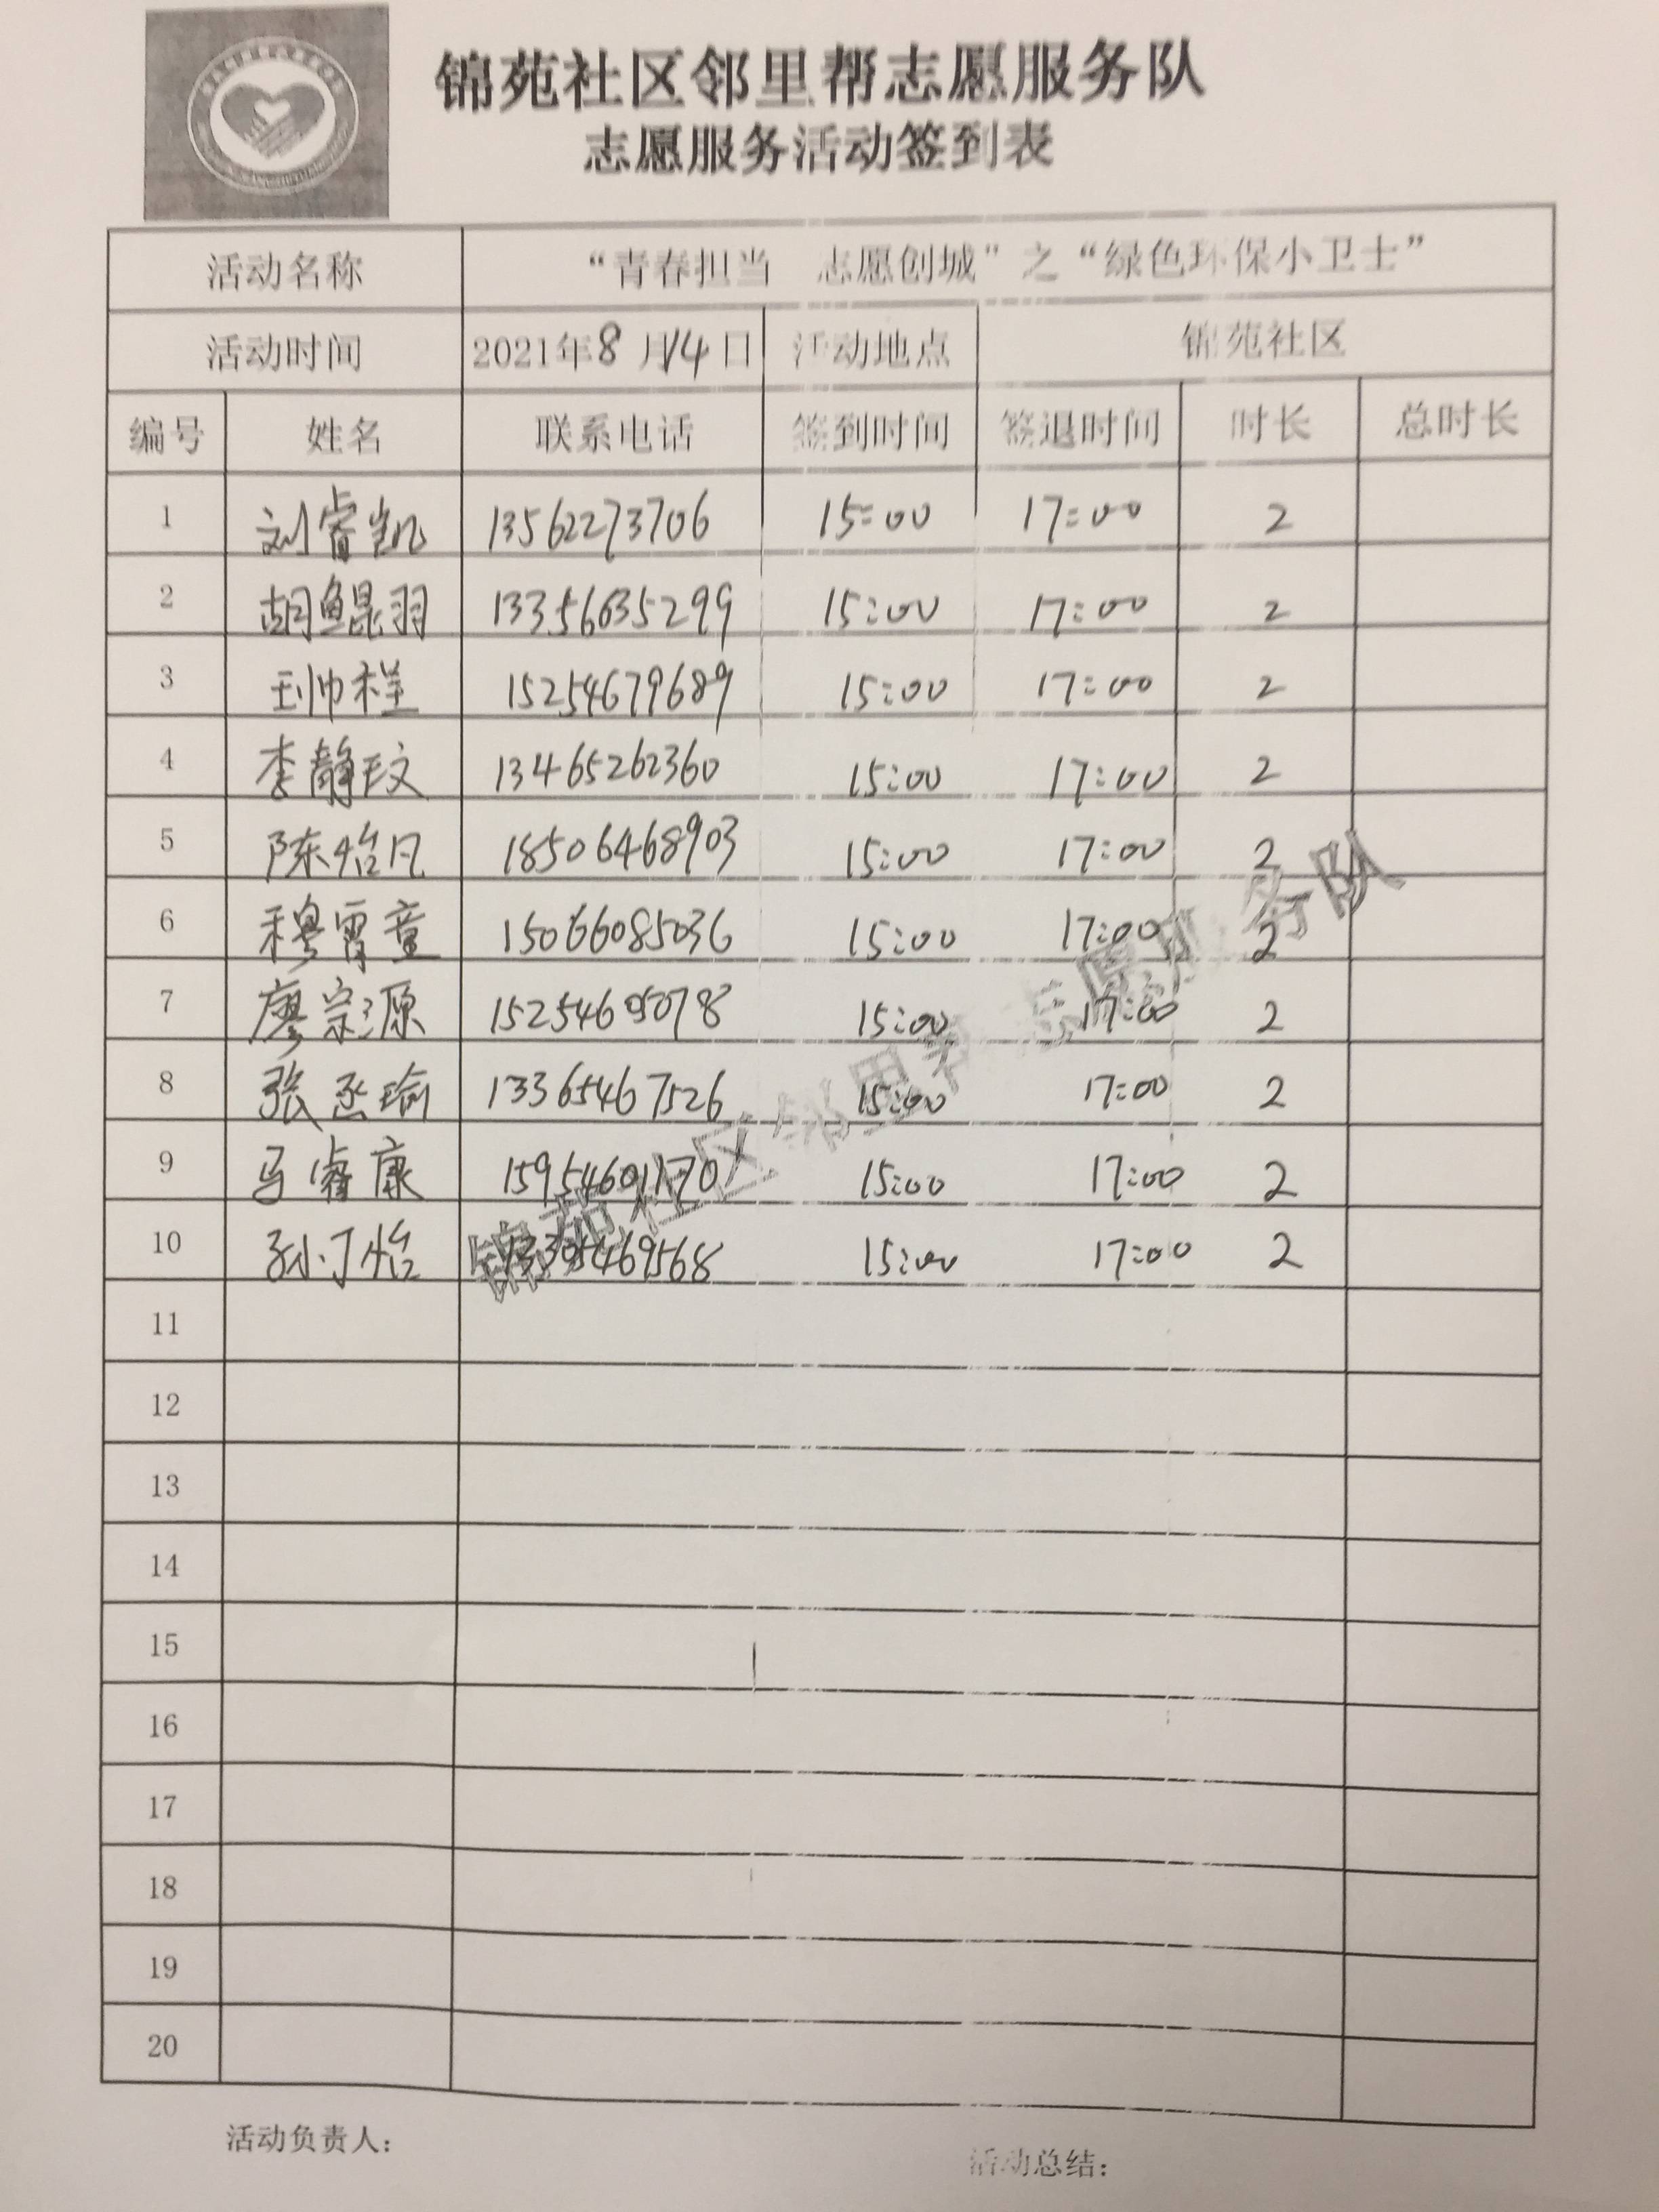 锦苑社区邻里帮志愿服务队
志愿服务活动签到表
活动名称 “青春担当 志愿创城”之“绿色环保小卫士”
活动时间 2021年8月14日 活动地点 锦苑社区
编号 姓名 联系电话 签到时间 签退时间 时长 总时长
1 刘睿凯 13562273706 15:00 17:00 2
2 胡鲲羽 13356635299 15:00 17:00 2
3 王帅程 15254679689 15:00 17:00 2
4 李静玟 13465262360 15:00 17:00 2
5 陈怡凡 18506468903 15:00 17:00 2
6 穆霄童 15066085036 15:00 17:00 2
7 廖宗源 15254605078 15:00 17:00 2
8 张丞瑜 13365467526 15:00 17:00 2
9 马睿康 15954601170 15:00 17:00 2
10 孙丁怡 13305469568 15:00 17:00 2
锦苑社区邻里帮志愿服务队
11
12
13
14
15
16
17
18
19
20
活动负责人： 活动总结：